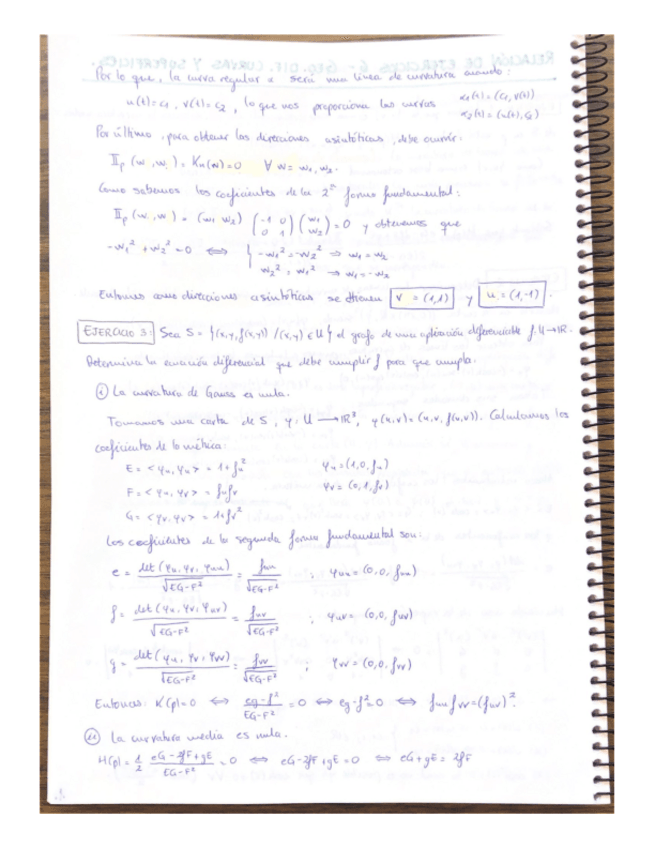 Por lo que, la curva regular α será una línea de curvatura cuando:
u(t)=c₁, v(t)=c₂, lo que nos proporciona las curvas α₁(t)=(c₁,v(t))
α₂(t)=(u(t),c₂)
Por último, para obtener las direcciones asintóticas, debe ocurrir:
II_p (w, w) = K_n(w)=0 ∀ w = w₁, w₂.
Como sabemos los coeficientes de la 2ª forma fundamental:
II_p (w, w) = (w₁ w₂) (-1 0; 0 1) (w₁; w₂) = 0 y obtenemos que
-w₁² + w₂² = 0 ⟺ { -w₁² = -w₂² ⇒ w₁ = w₂
w₂² = w₁² ⇒ w₁ = -w₂
Entonces como direcciones asintóticas se tienen v = (1,1) y u = (1,-1).
EJERCICIO 3: Sea S = {(x,y,f(x,y)) / (x,y) ∈ U} el grafo de una aplicación diferenciable f: U → ℝ.
Determina la ecuación diferencial que debe cumplir f para que cumpla.
(i) La curvatura de Gauss es nula.
Tomamos una carta de S, φ: U → ℝ³, φ(u,v) = (u,v, f(u,v)). Calculamos los
coeficientes de la métrica:
E = <φu, φu> = 1 + fu² φu = (1,0,fu)
F = <φu, φv> = fu fv φv = (0,1,fv)
G = <φv, φv> = 1 + fv²
Los coeficientes de la segunda forma fundamental son:
e = det(φu, φv, φuu) / √EG-F² = fuu / √EG-F² ; φuu = (0,0,fuu)
f = det(φu, φv, φuv) / √EG-F² = fuv / √EG-F² ; φuv = (0,0,fuv)
g = det(φu, φv, φvv) / √EG-F² = fvv / √EG-F² ; φvv = (0,0,fvv)
Entonces: K(p)=0 ⟺ eg-f² / EG-F² = 0 ⟺ eg-f²=0 ⟺ fuu fvv = (fuv)².
(ii) La curvatura media es nula.
H(p) = 1/2 eG-2fF+gE / EG-F² = 0 ⟺ eG-2fF+gE=0 ⟺ eG+gE = 2fF